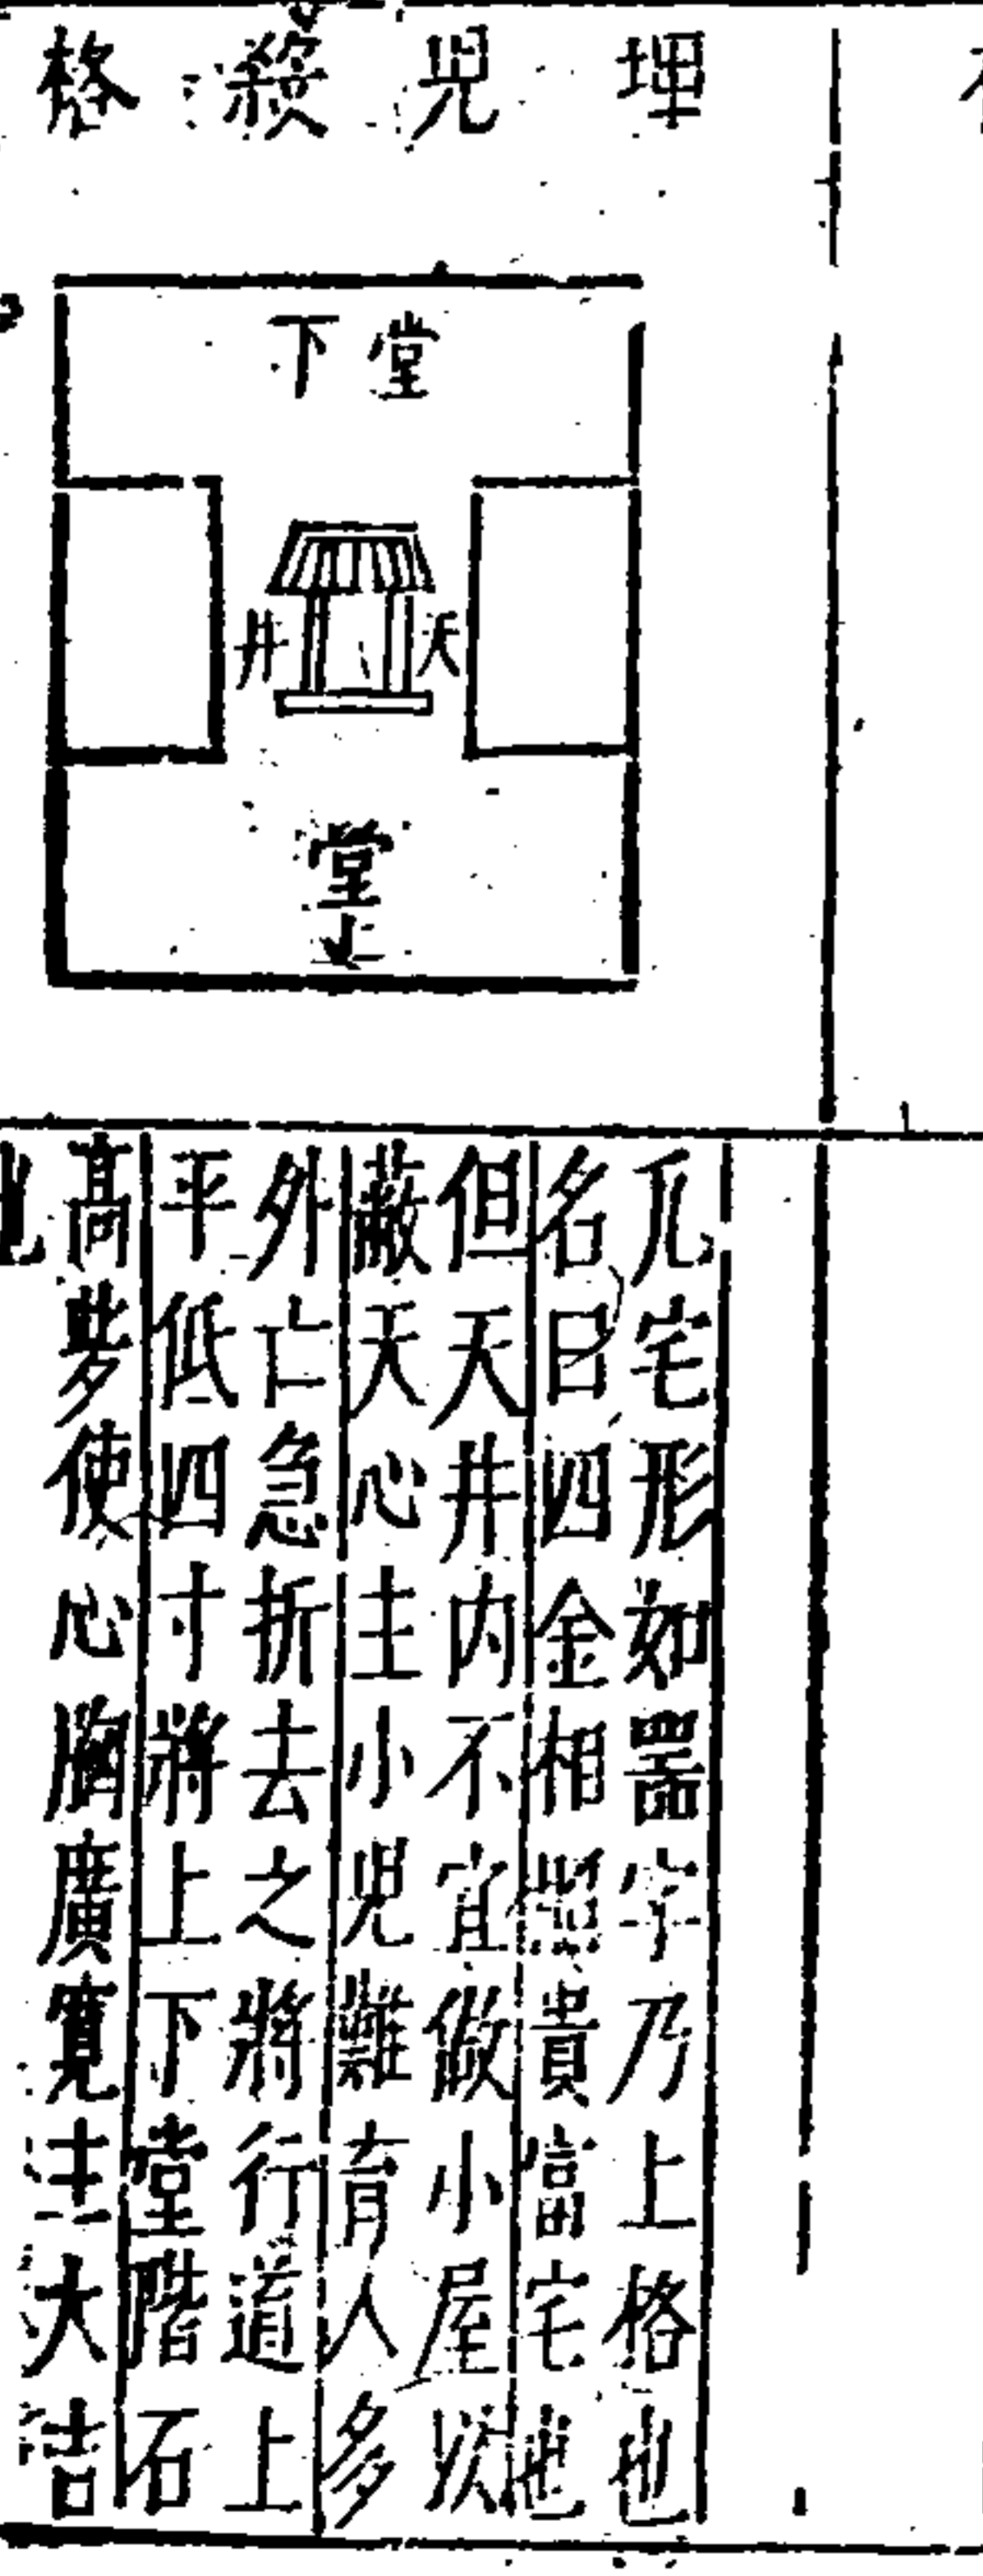 埋兒殺格
堂下
天井
堂上
凢宅形如噐字乃上格也
名曰四金相照貴富宅也
但天井内不宜做小屋以
蔽天心主小兒難育人多
外亡急折去之將行道上
平低四寸將上下堂階石
高使心胸廣寛主大吉
也